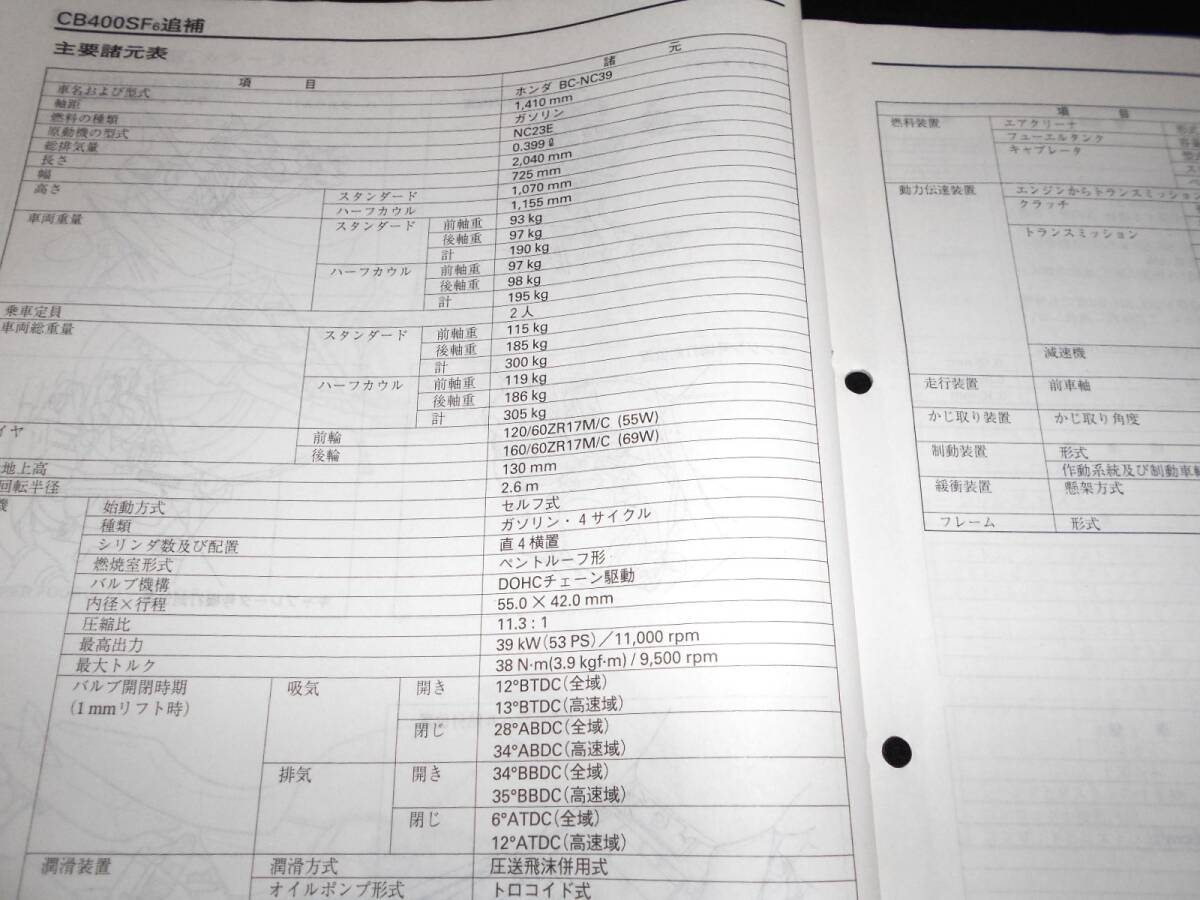 CB400SF6追補
主要諸元表
項 目 諸 元
車名および型式 ホンダ BC-NC39
軸距 1,410 mm
燃料の種類 ガソリン
原動機の型式 NC23E
総排気量 0.399 ℓ
長さ 2,040 mm
幅 725 mm
高さ スタンダード 1,070 mm
ハーフカウル 1,155 mm
車両重量 スタンダード 前軸重 93 kg
後軸重 97 kg
計 190 kg
ハーフカウル 前軸重 97 kg
後軸重 98 kg
計 195 kg
乗車定員 2人
車両総重量 スタンダード 前軸重 115 kg
後軸重 185 kg
計 300 kg
ハーフカウル 前軸重 119 kg
後軸重 186 kg
計 305 kg
イヤ 前輪 120/60ZR17M/C (55W)
後輪 160/60ZR17M/C (69W)
地上高 130 mm
回転半径 2.6 m
機 始動方式 セルフ式
種類 ガソリン・4サイクル
シリンダ数及び配置 直4横置
燃焼室形式 ペントルーフ形
バルブ機構 DOHCチェーン駆動
内径×行程 55.0 × 42.0 mm
圧縮比 11.3 : 1
最高出力 39 kW(53 PS)/11,000 rpm
最大トルク 38 N·m(3.9 kgf·m) / 9,500 rpm
バルブ開閉時期 吸気 開き 12°BTDC(全域)
(1 mmリフト時) 13°BTDC(高速域)
閉じ 28°ABDC(全域)
34°ABDC(高速域)
排気 開き 34°BBDC(全域)
35°BBDC(高速域)
閉じ 6°ATDC(全域)
12°ATDC(高速域)
潤滑装置 潤滑方式 圧送飛沫併用式
オイルポンプ形式 トロコイド式
項 目
燃料装置 エアクリーナ
フューエルタンク
キャブレータ
動力伝達装置 エンジンからトランスミッション
クラッチ
トランスミッション
減速機
走行装置 前車軸
かじ取り装置 かじ取り角度
制動装置 形式
作動系統及び制動車輪
緩衝装置 懸架方式
フレーム 形式